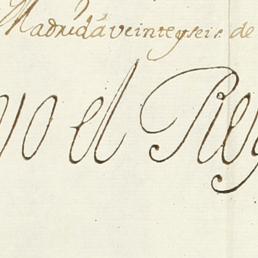 Madrid á veinte y seis de
yo el Rey